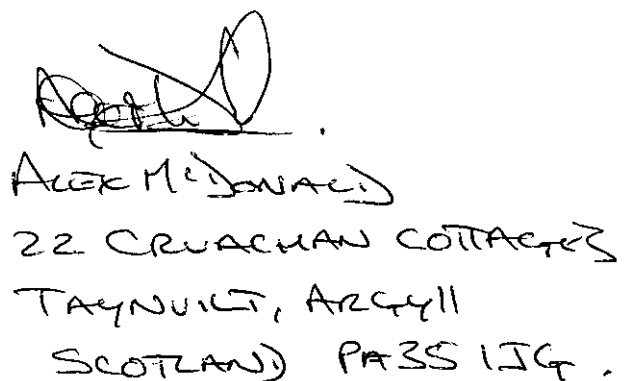 ALEX McDONALD
22 CRUACHAN COTTAGES
TAYNUILT, ARGYll
SCOTLAND PA35 1JG.